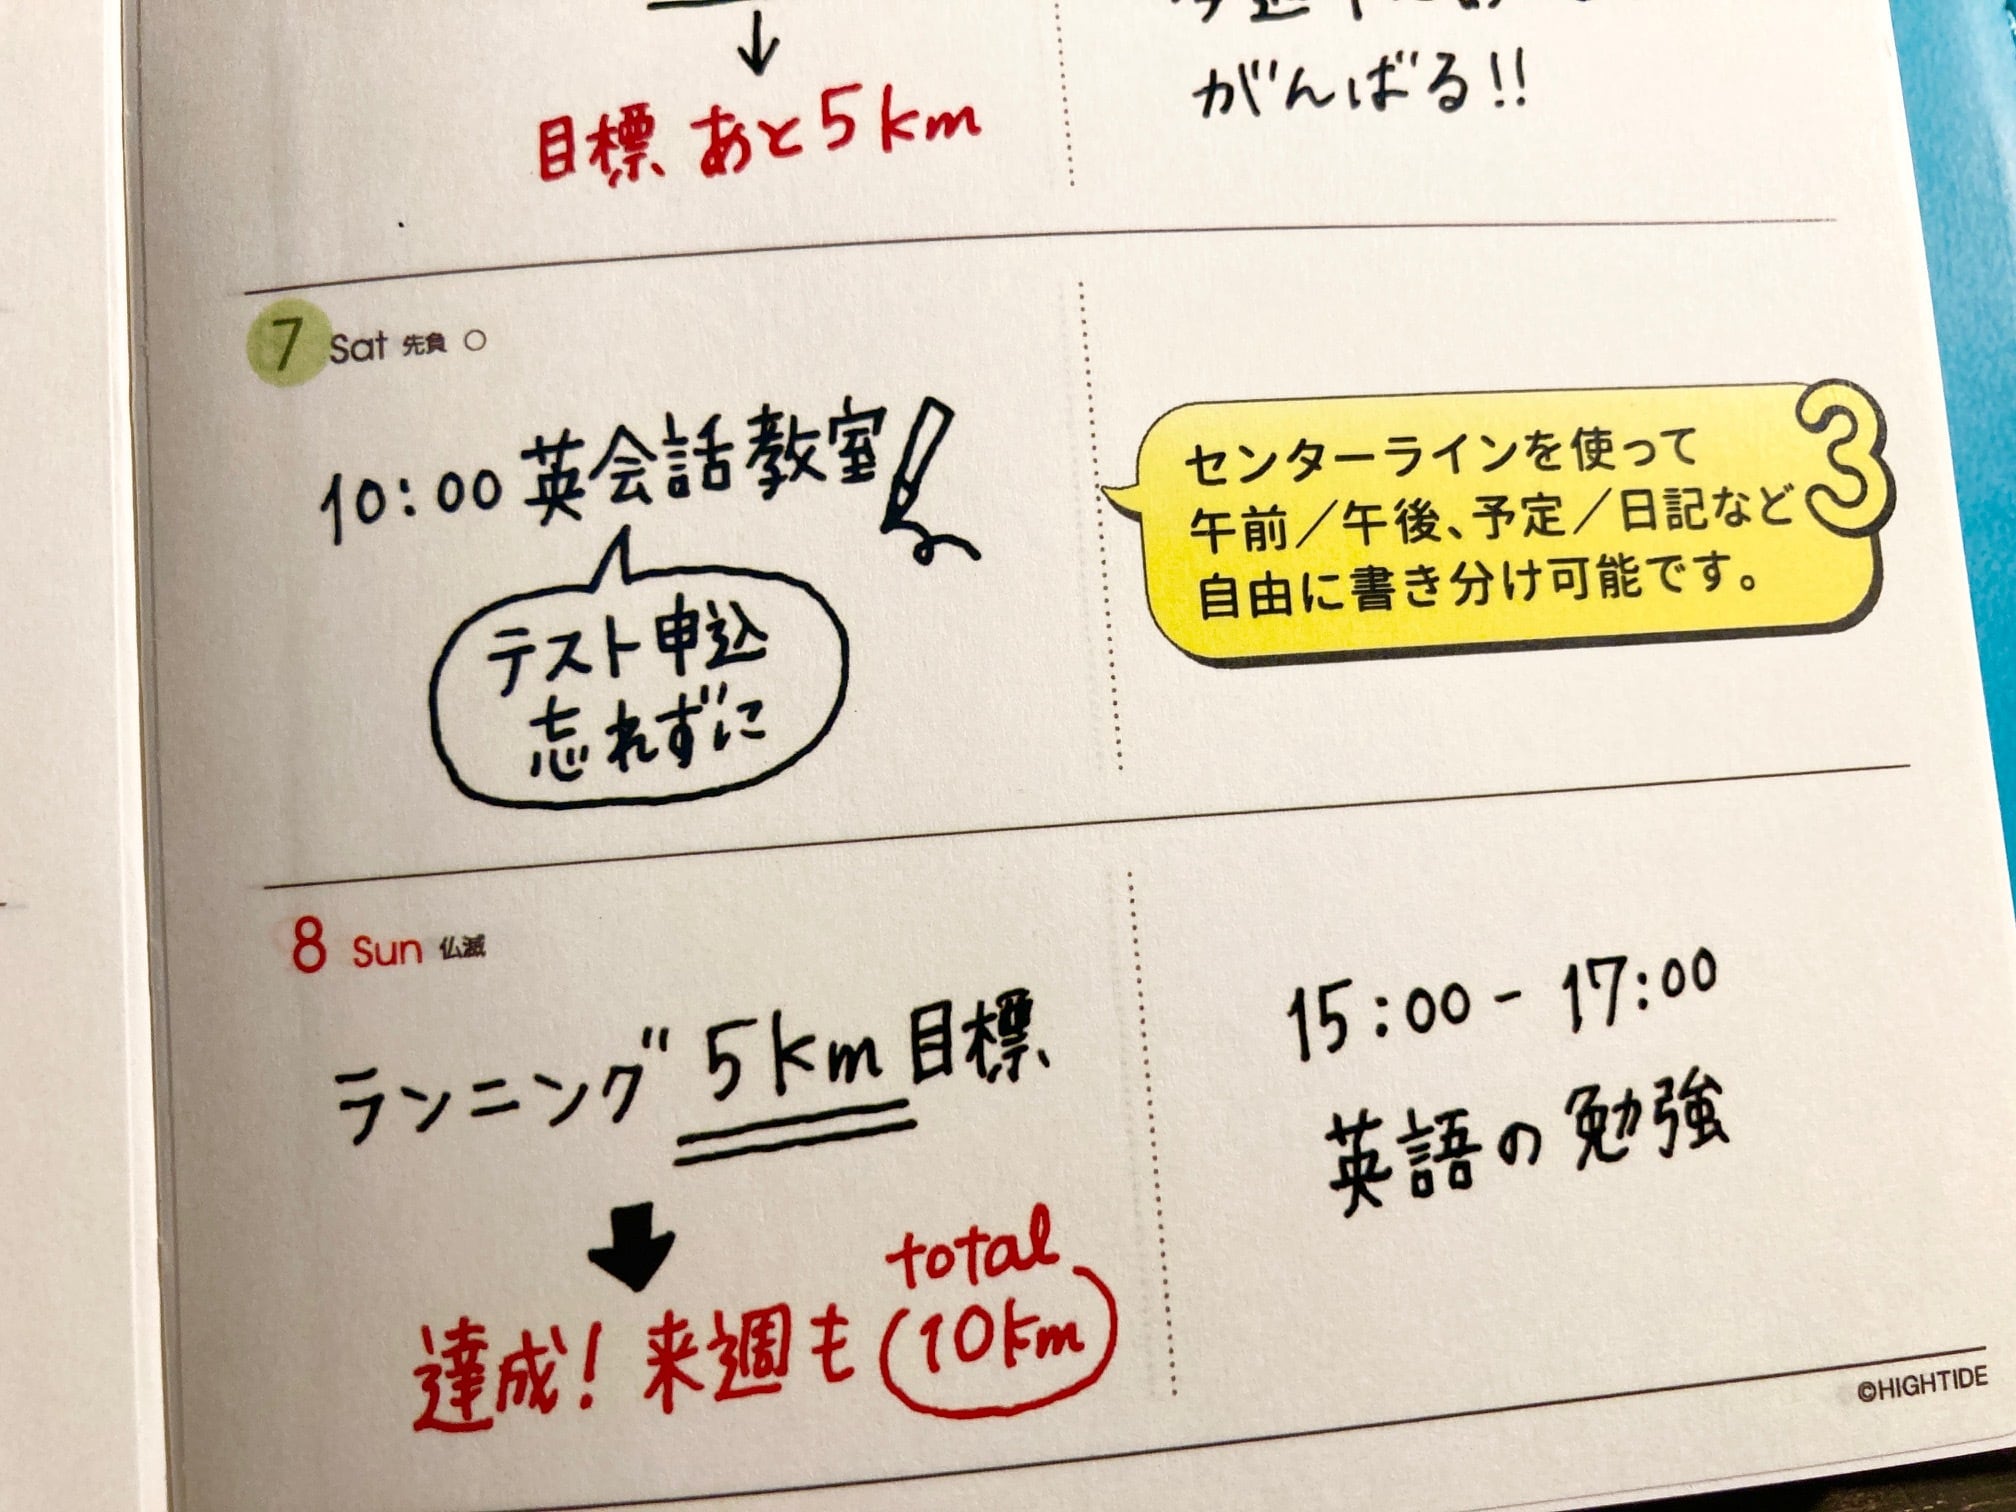 目標 あと5km
がんばる!!
7 Sat 先負 ○
10:00 英会話教室
テスト申込
忘れずに
センターラインを使って
午前／午後、予定／日記など
自由に書き分け可能です。
3
8 Sun 仏滅
ランニング 5km 目標
total
達成! 来週も 10km
15:00 - 17:00
英語の勉強
©HIGHTIDE